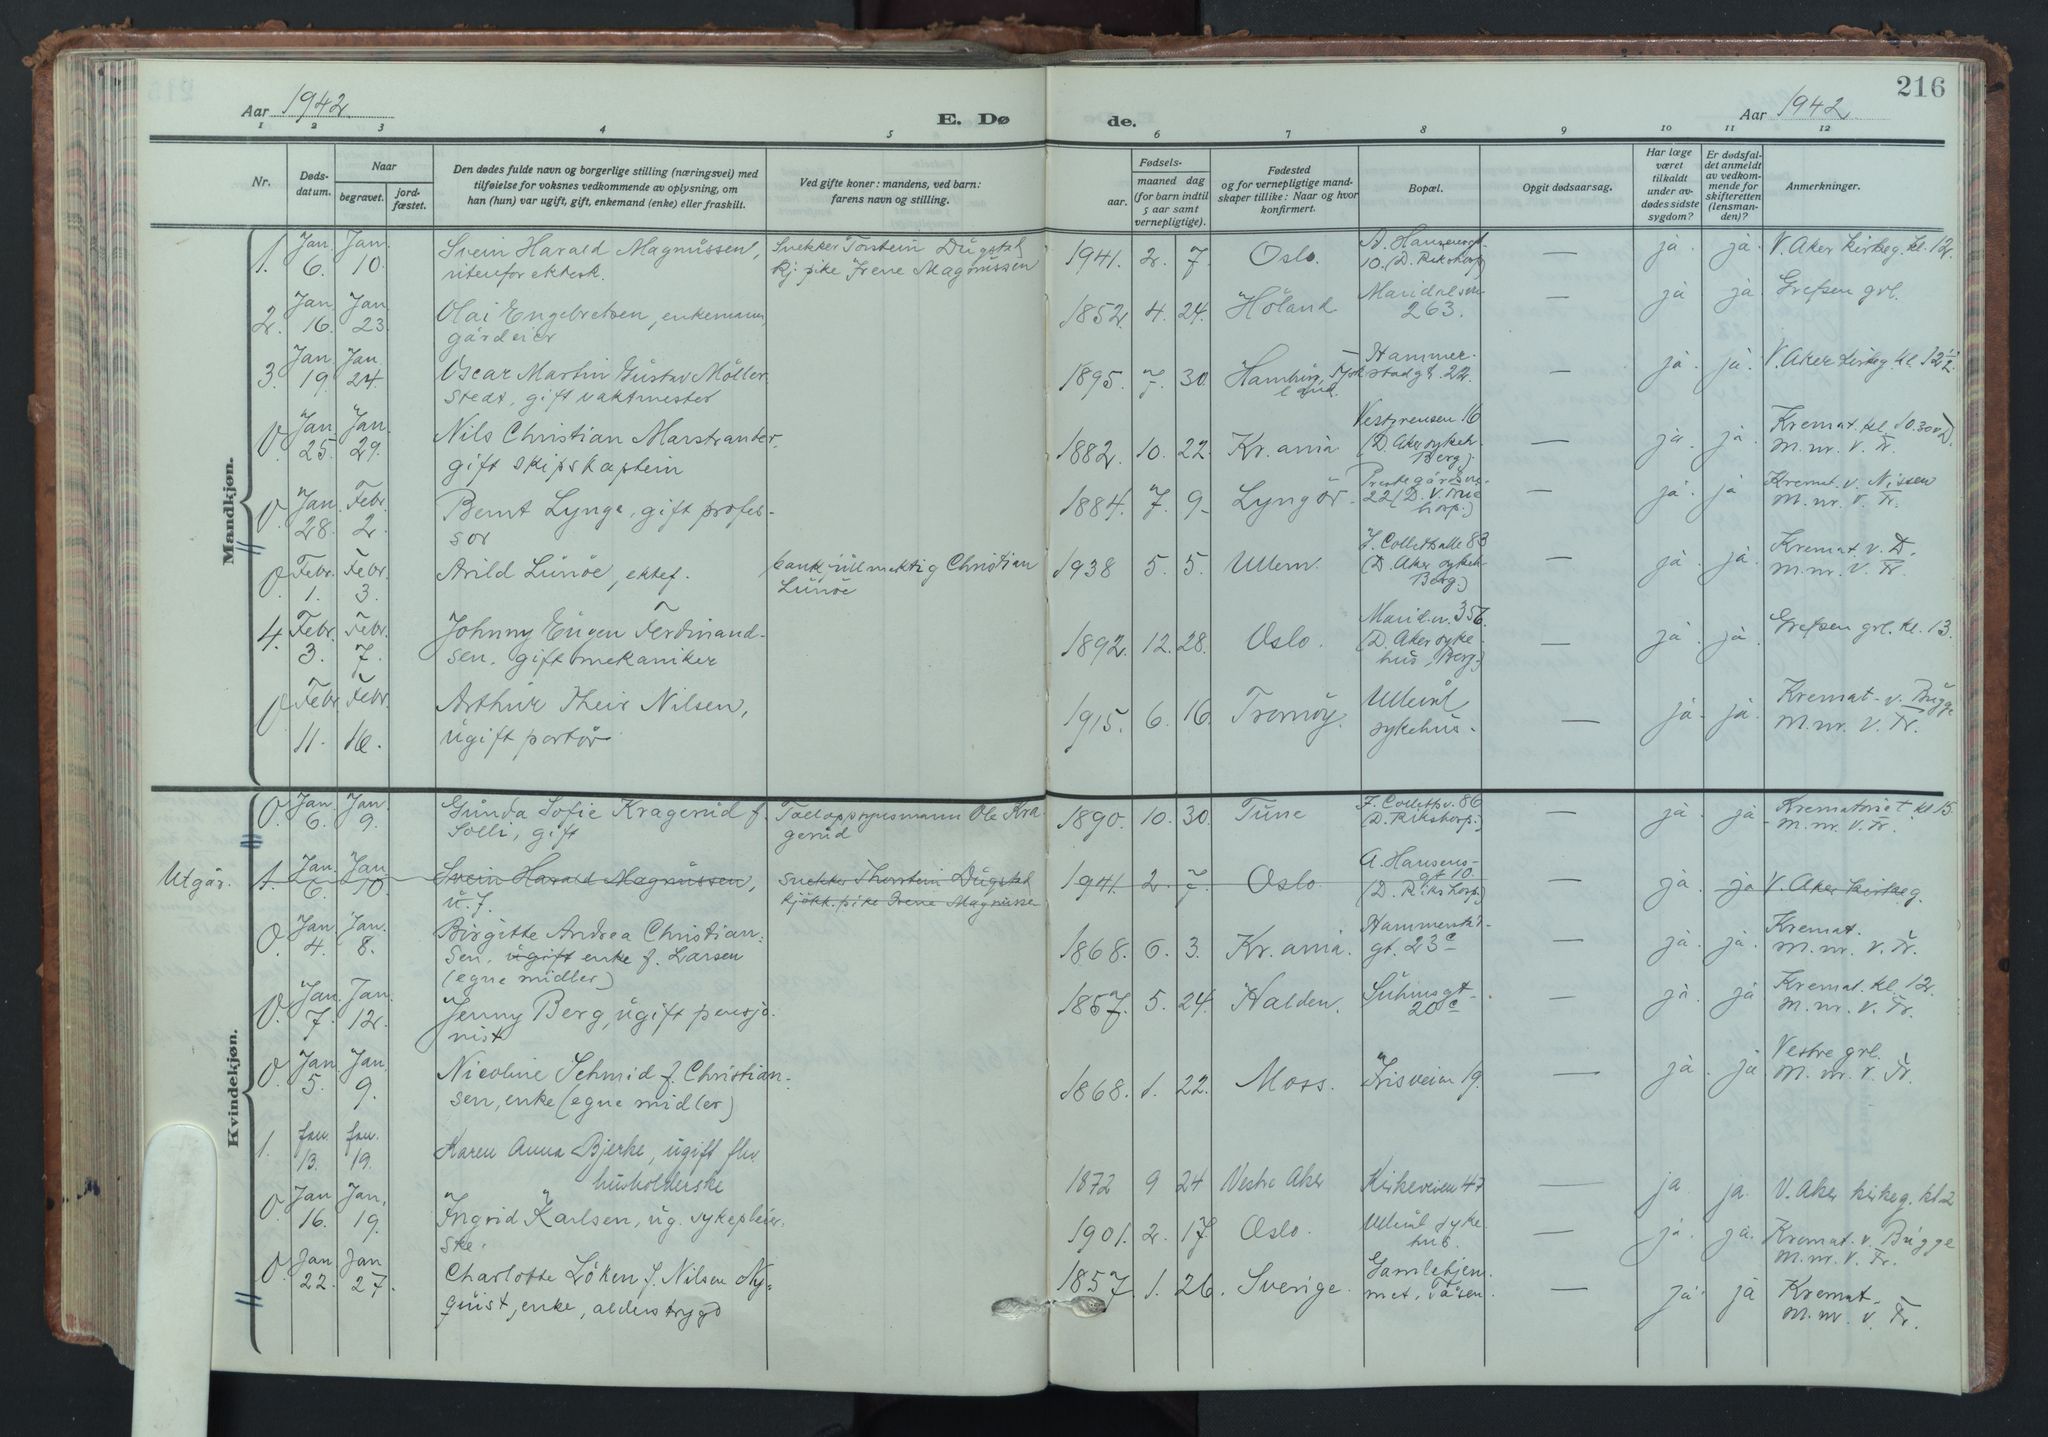 216
Aar 1942
E. Døde.
Aar 1942
1 2 3 4 5 6 7 8 9 10 11 12
Nr.
Dødsdatum.
Naar
begravet.
jordfæstet.
Den dødes fulde navn og borgerlige stilling (næringsvei) med
tilføielse for voksnes vedkommende av oplysning, om
han (hun) var ugift, gift, enkemand (enke) eller fraskilt.
Ved gifte koner: mandens, ved barn:
farens navn og stilling.
Fødsels-
aar.
maaned dag
(for barn indtil
5 aar samt
vernepligtige).
Fødested
og for vernepligtige mandskaper tillike: Naar og hvor
konfirmert.
Bopæl.
Opgit dødsaarsag.
Har læge
været
tilkaldt
under avdødes sidste
sygdom?
Er dødsfaldet anmeldt
av vedkommende for
skifteretten
(lensmanden)?
Anmerkninger.
Mandkjøn.
1. Jan 6. Jan 10. Svein Harald Magnussen, utenfor ektesk. Snekker Torstein Dugstad kj. pike Irene Magnussen 1941. 2. 7. Oslo. A. Hansensgt. 10. (D. Rikshosp) — ja. ja. V. Aker kirkeg. kl. 12.
2. Jan 16. Jan 23. Olai Engebretsen, enkemann, gårdeier 1852. 4. 24. Höland Maridalsvn 263. — ja ja. Grefsen grl.
3. Jan 19. Jan 24. Oscar Martin Gustav Möllerstedt, gift vaktmester 1895. 7. 30. Hamburg, Tyskland. Hammerstadgt. 22. — ja. ja. V. Aker kirkeg kl. 12 1/2
0. Jan 25. Jan. 29. Nils Christian Marstrander. gift skipskaptein 1882. 10. 22. Kr.ania Vestgrensen 16 (D. Aker sykeh. Berg). — ja. ja. Kremat. kl. 10.30 v D. M. nr. V. Fr.
0. Jan 28. Febr 2. Bernt Lynge, gift professor 1884. 7. 9. Lyngör. Prestegårdsvn. 22 (D. V. Frue hosp.) — ja. ja Kremat. v. Nissen M. nr. V. Fr.
0. Febr. 1. Febr. 3. Arild Lunöe, ektef. bankfullmektig Christian Lunöe 1938 5. 5. Ullern. J. Collettsalle 83 (D. Aker sykeh Berg.) — ja. ja. Kremat. v. D. M. nr. V. Fr.
4. Febr. 3. Febr. 7. Johnny Eugen Ferdinandsen, gift mekaniker 1892. 12. 28. Oslo. Marid.vn. 356. (D. Aker sykehus, Berg.) — ja. ja. Grefsen grl. kl. 13.
0 Febr 11. Febr. 16. Arthur Their Nilsen, ugift portör 1915. 6. 16. Tromöy. Ullevål sykehus. — ja. ja. Kremat. v. Bugge M. nr. V. Fr.
Kvindekjøn.
0. Jan 6. Jan. 9. Gunda Sofie Kragerud f. Solli, gift Tolloppsynsmann Ole Kragerud 1890. 10. 30. Tune J. Collettsv. 86 (D. Rikshosp.) — ja. ja. Krematoriet kl 15. M. nr. V. Fr.
Utgår. 1. Jan 6. Jan 10. Svein Harald Magnussen, u.f. snekker Thorstein Dugstad kjökk.pike Irene Magnusse 1941. 2. 7. Oslo. A. Hansensgt 10. (D. Rikshosp.) ja. ja V. Aker kirkeg.
0. Jan 4. Jan. 8. Birgitte Andrea Christiansen, ugift enke f. Larsen (egne midler) 1868. 6. 3. Kr.ania. Hammerstadgt. 23 c — ja. ja. Kremat. M. nr. V. Fr.
0. Jan 7. Jan. 12. Jenny Berg, ugift pensjonist 1857. 5. 24. Halden. Suhmsgt 20 c — ja. ja Kremat. kl. 12. M. nr. V. Fr.
0. Jan 5. Jan 9. Nicoline Schmid f. Christiansen, enke (egne midler) 1868. 1. 22. Moss. Irisveien 19. — ja. ja Vestre grl. M. nr. V. Fr.
1. Jan. 13. Jan. 19. Karen Anna Bjerke, ugift fhv. husholderske 1872 9 24 Vestre Aker Kirkeveien 47 — ja ja. V. Aker kirkeg. kl 2
0. Jan 16. Jan, 19. Ingrid Karlsen, ug. sykepleierske. 1901. 2. 17 Oslo. Ullevål sykehus. — ja. ja. Kremat. v. Bugge M. nr. V. Fr.
0. Jan 22. Jan 27. Charlotte Löken f. Nilsen Nyquist, enke, alderstrygd 1857. 1. 26. Sverige. Gamlehjemmet, Tåsen. — ja. ja Kremat. M. nr. V. Fr.